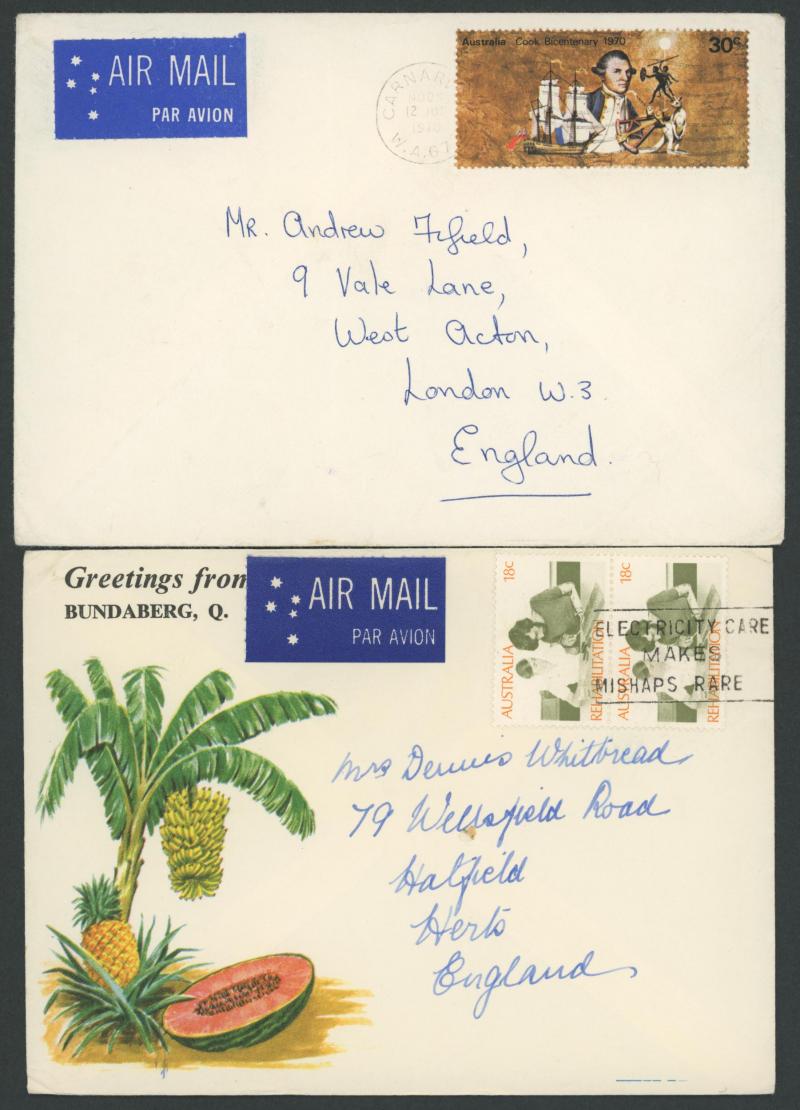 AIR MAIL
PAR AVION
Australia Cook Bicentenary 1970 30c
CARNARV
12
1970
W.A. 67
Mr. Andrew Fifield,
9 Vale Lane,
West Acton,
London W.3.
England.
Greetings from
BUNDABERG, Q.
AIR MAIL
PAR AVION
AUSTRALIA 18c
REHABILITATION
AUSTRALIA 18c
REHABILITATION
ELECTRICITY CARE
MAKES
MISHAPS RARE
Mrs Dennis Whitbread
79 Wellsfield Road
Hatfield
Herts
England